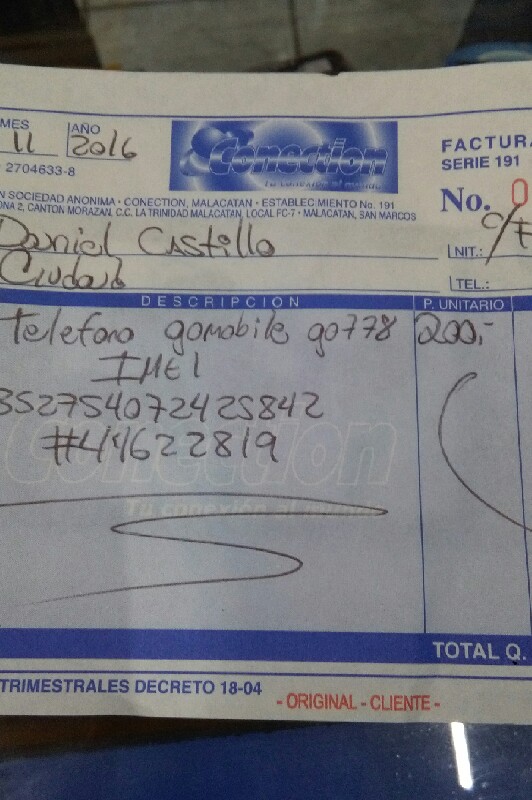 MES AÑO
11 2016
Conection
Tu conexión al mundo
FACTURA
SERIE 191
2704633-8
No. 0
N SOCIEDAD ANONIMA • CONECTION, MALACATAN • ESTABLECIMIENTO No. 191
ONA 2, CANTON MORAZAN, C.C. LA TRINIDAD MALACATAN, LOCAL FC-7 • MALACATAN, SAN MARCOS
Daniel Castillo
NIT.: C/F
Ciudad
TEL.:
DESCRIPCION P. UNITARIO
Telefono gomobile go778 200.-
IMEI
352754072425842
#44622819
Conection
Tu conexión al mundo
TOTAL Q.
TRIMESTRALES DECRETO 18-04
- ORIGINAL - CLIENTE -